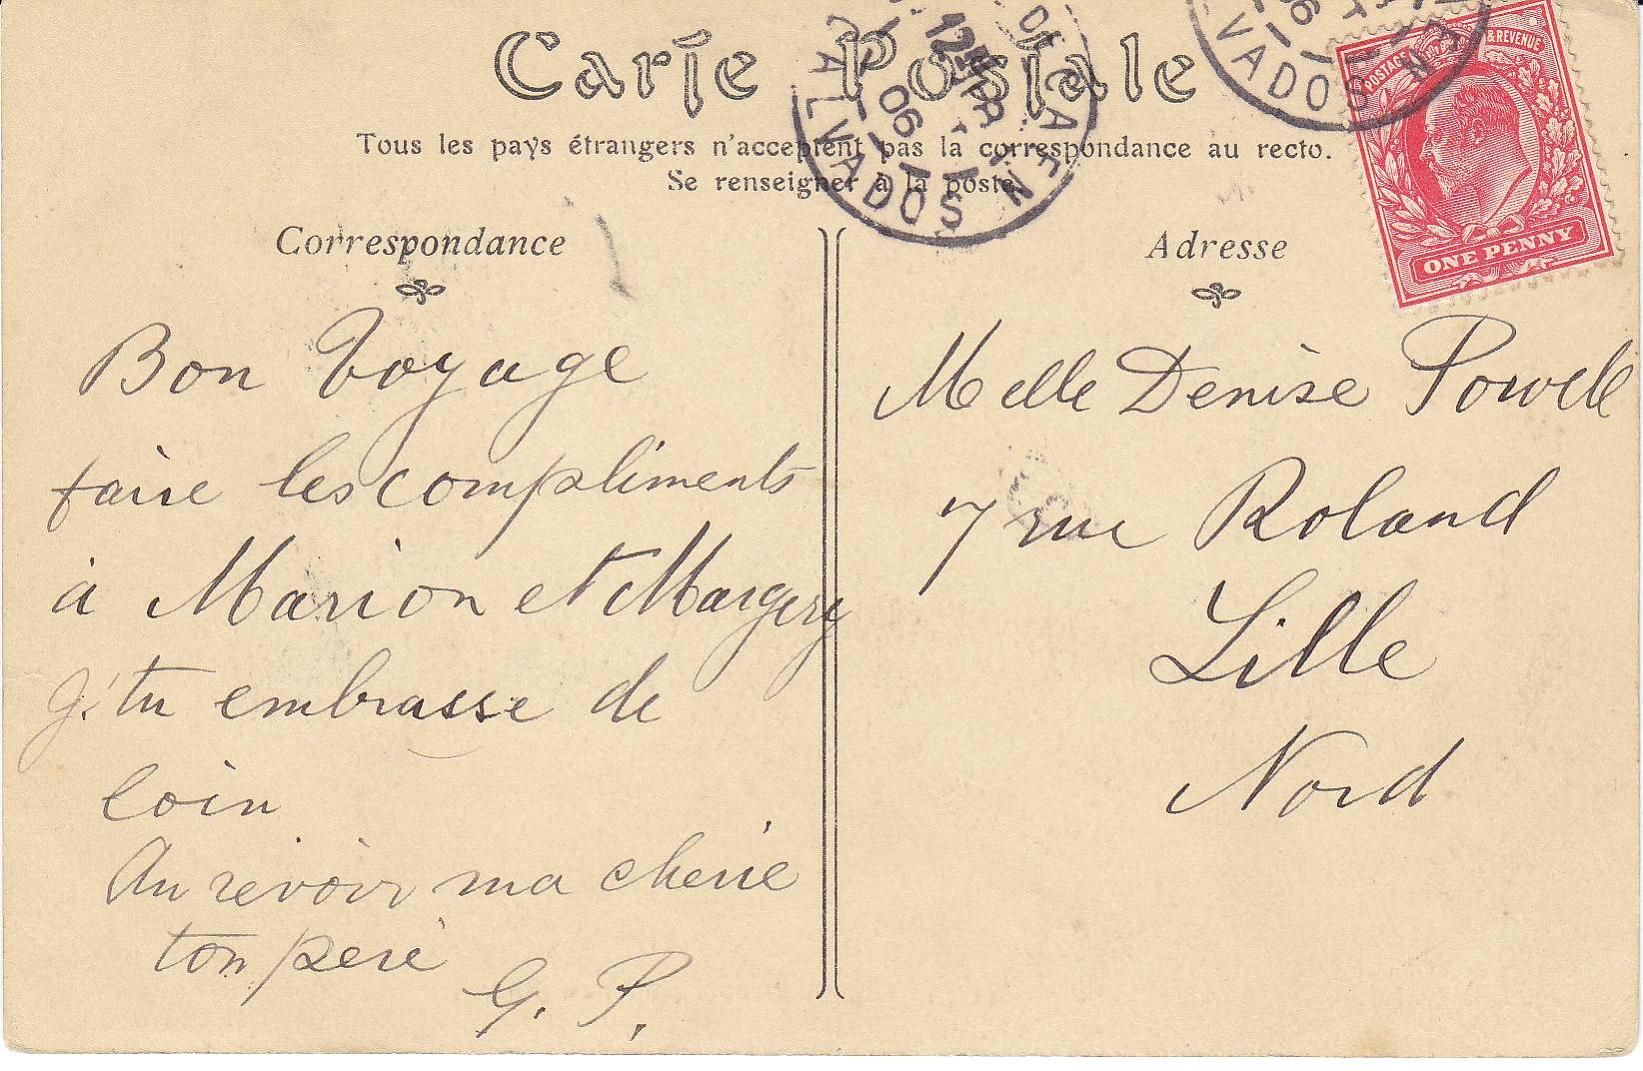 Carte Postale
Tous les pays étrangers n'acceptent pas la correspondance au recto.
Se renseigner à la poste.
Correspondance
Bon Voyage
faire les compliments
à Marion et Margery
j'tu embrasse de
loin
Au revoir ma cherie
ton pere
G. P.
Adresse
Melle Denise Powell
7 rue Roland
Lille
Nord
POSTAGE & REVENUE
ONE PENNY
CALVADOS
06
VADOS
06